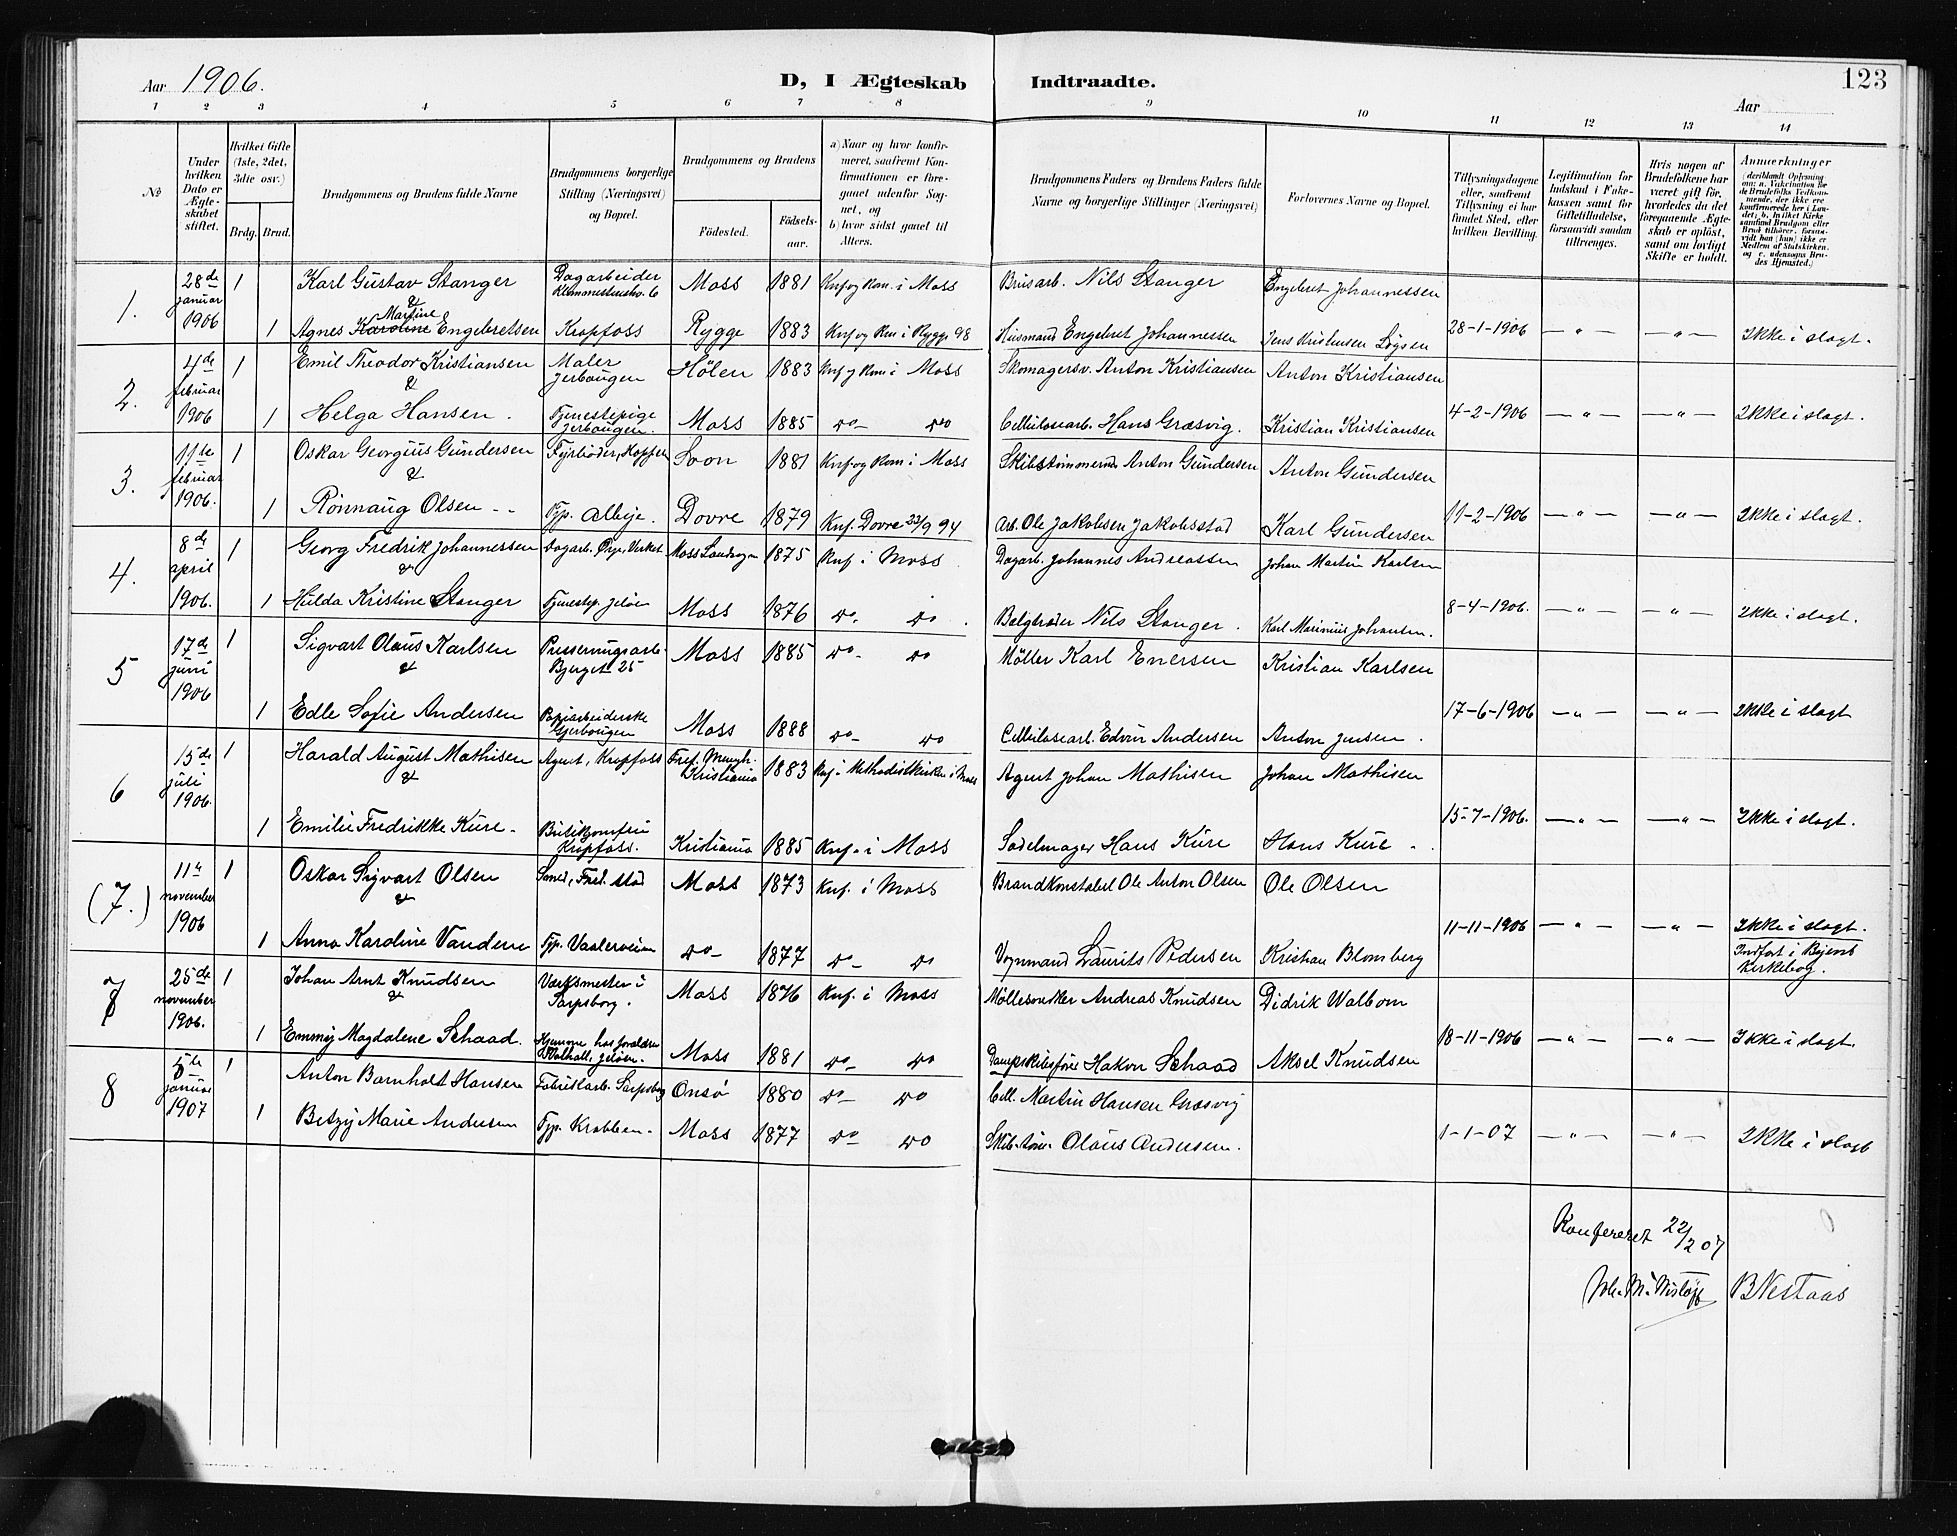 Aar 1906.
D, I Ægteskab Indtraadte.
Aar
123
1 2 3 4 5 6 7 8 9 10 11 12 13 14
No
Under hvilken Dato er Ægteskabet stiftet.
Hvilket Gifte (1ste, 2det, 3die osv.)
Brdg. Brud.
Brudgommens og Brudens fulde Navne
Brudgommens borgerlige Stilling (Næringsvei) og Bopæl.
Brudgommens og Brudens
Födested.
Födselsaar.
a) Naar og hvor konfirmeret, saafremt Konfirmationen er foregaaet udenfor Sognet, og
b) hvor sidst gaaet til Alters.
Brudgommens Faders og Brudens Faders fulde Navne og borgerlige Stillinger (Næringsvei)
Forlovernes Navne og Bopæl.
Tillysningsdagene eller, saafremt Tillysning ei har fundet Sted, efter hvilken Bevilling.
Legitimation for Indskud i Enkekassen samt for Giftetilladelse, forsaavidt saadan tiltrænges.
Hvis nogen af Brudefolkene har været gift før, hvorledes da det foregaaende Ægteskab er opløst, samt om lovligt Skifte er holdt.
Anmærkninger
1. 28de januar 1906 1 Karl Gustav Stanger & Dagarbeider Moss 1881 Knf og Kom. i Moss Brusarb. Nils Stanger Engebret Johannessen
1 Agnes Karoline Martine Engebretsen Kropfoss Rygge 1883 Knf og Kom i Rygge 98 Husmand Engebret Johannessen Jens Kristensen 28-1-1906 — „ — — „ — Ikke i slagt.
2. 4de februar 1906 1 Emil Theodor Kristiansen & Maler Jerbaugen Hölen 1883 Knf og Kom i Moss Skomagersv. Anton Kristiansen Anton Kristiansen
1 Helga Hansen. Tjenestepige Jerbaugen. Moss 1885 do do Cellulosearb. Hans Græsvig. Kristian Kristiansen 4-2-1906 — „ — — „ — Ikke i slagt.
3. 11te februar 1906. 1 Oskar Georgius Gundersen & Fyrböder, Kopfoss Soon 1881 Knf og Kom i Moss Skibstömmermd Anton Gundersen Anton Gundersen
1 Rønnaug Olsen Tjp. Albye. Dovre 1879 Knf. Dovre 23/9 94 Arb. Ole Jakobsen Jakobsstad Karl Gundersen 11-2-1906 — „ — — „ — Ikke i slagt.
4. 8de april 1906. 1 Georg Fredrik Johannessen & Moss Landsogn 1875 Knf i Moss Dagarb. Johannes Andreassen Johan Martin Karlsen
1 Hulda Kristine Stanger Tjenestep. Jeløen Moss 1876 do. do. Nils Stanger. Karl Marinius Johansen. 8-4-1906. — „ — — „ — Ikke i slagt.
5 17de juni 1906 1 Sigvart Olaus Karlsen & Bjerget 25 Moss 1885 do do Möller Karl Enersen Kristian Karlsen
1 Edle Sofie Andersen Papirarbeiderske Gjerbougen Moss 1888 do do Cellulosearb. Edvin Andersen Anton Jensen. 17-6-1906 — „ — — „ — Ikke i slagt
6 15de juli 1906. 1 Harald August Mathisen & Agent, Kropfoss Fref. Menigh. Kristiania 1883 Knf i Methodistkirken i Moss Agent Johan Mathisen Johan Mathisen
1 Emilie Fredrikke Kure. Butikjomfru Kropfoss. Kristiania 1885 Knf. i Moss Sadelmager Hans Kure Hans Kure. 15-7-1906. — „ — — „ — Ikke i slagt.
(7.) 11te november 1906 1 Oskar Sigvart Olsen & Smed, Fred.stad Moss 1873 Knf. i Moss Brandkonstabel Ole Anton Olsen Ole Olsen
1 Anna Karoline Vandem Tjp. Vaalerveien do 1877 do do Vognmand Laurits Pedersen Kristian Blomberg 11-11-1906 — „ — — „ — Ikke i slagt. Indført i Byens Kirkebog.
7 25de november 1906. 1 Johan Arnt Knudsen & Værksmester i Sarpsborg. Moss 1876 Knf. i Moss Möllesvender Andreas Knudsen Didrik Walbom
1 Emmy Magdalene Schaad. Hjemme hos forældre Walhall, Jeløen. Moss 1881 do do Dampskibsfører Hakon Schaad Aksel Knudsen 18-11-1906 — „ — — „ — Ikke i slagt.
8 januar 1907 1 Anton Barnholt Hansen Fabrikarb. Sarpsborg Onsö 1880 do do Cell. Martin Hansen Græsvig
1 Betzy Marie Andersen Tjp. Krabben. Moss 1877 do do Olaus Andersen. 1-1-07 — „ — — „ — Ikke i slagt
Konfereret 22/2 07
B Nestaas